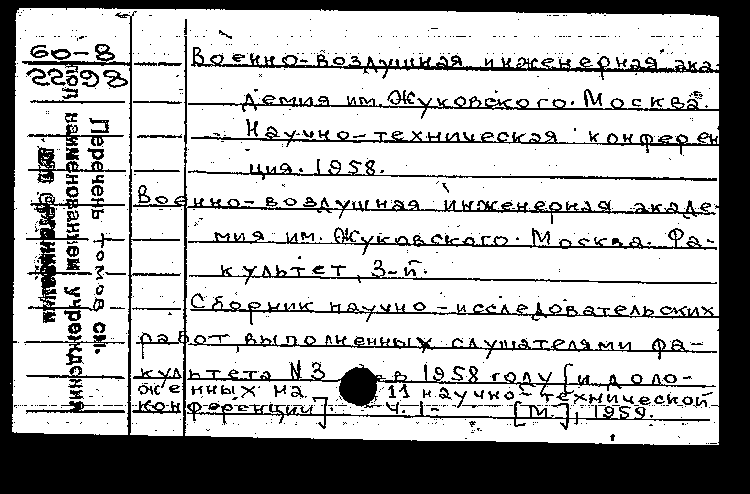 60-8
2298
Военно-воздушная инженерная ака-
демия им. Жуковского. Москва.
Научно-техническая конферен
ция. 1958.
Военно-воздушная инженерная акаде-
мия им. Жуковского. Москва. Фа-
культет, 3-й.
Сборник научно-исследовательских
работ, выполненных слушателями фа-
культета №3 в 1958 году [и доло-
женных на 11 научно-технической
конференции]. Ч. 1- [М.], 1959.
Перечень томов см.
под наименованием учреждения